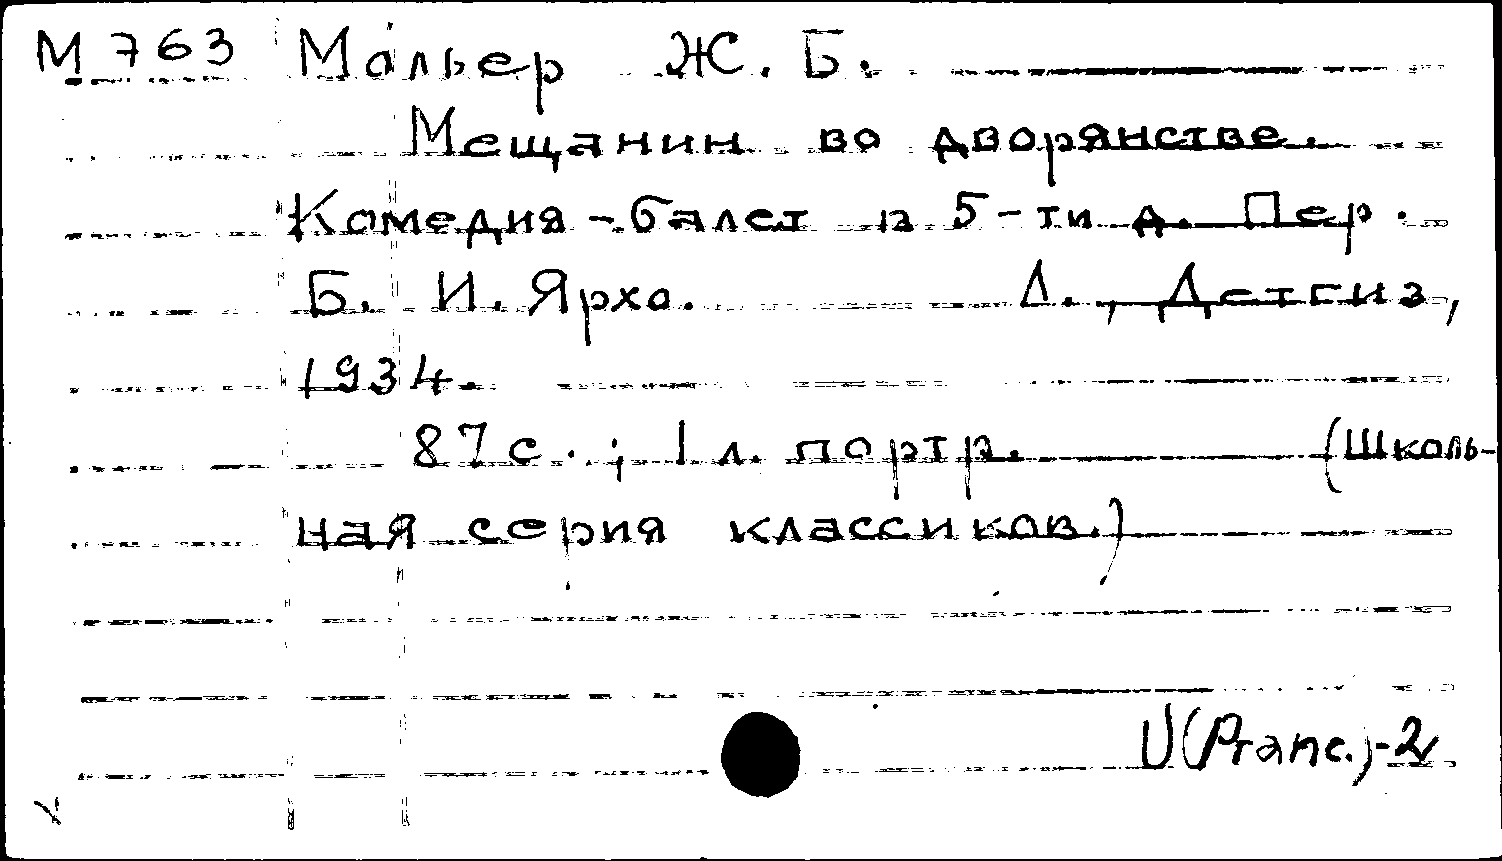 М 763 Мольер Ж. Б.
Мещанин во дворянстве.
Комедия-балет в 5-ти д. Пер.
Б. И. Ярхо. Л., Детгиз,
1934.
87 с.; 1 л. портр. (Школь-
ная серия классиков.)
U(Pranc.)-2